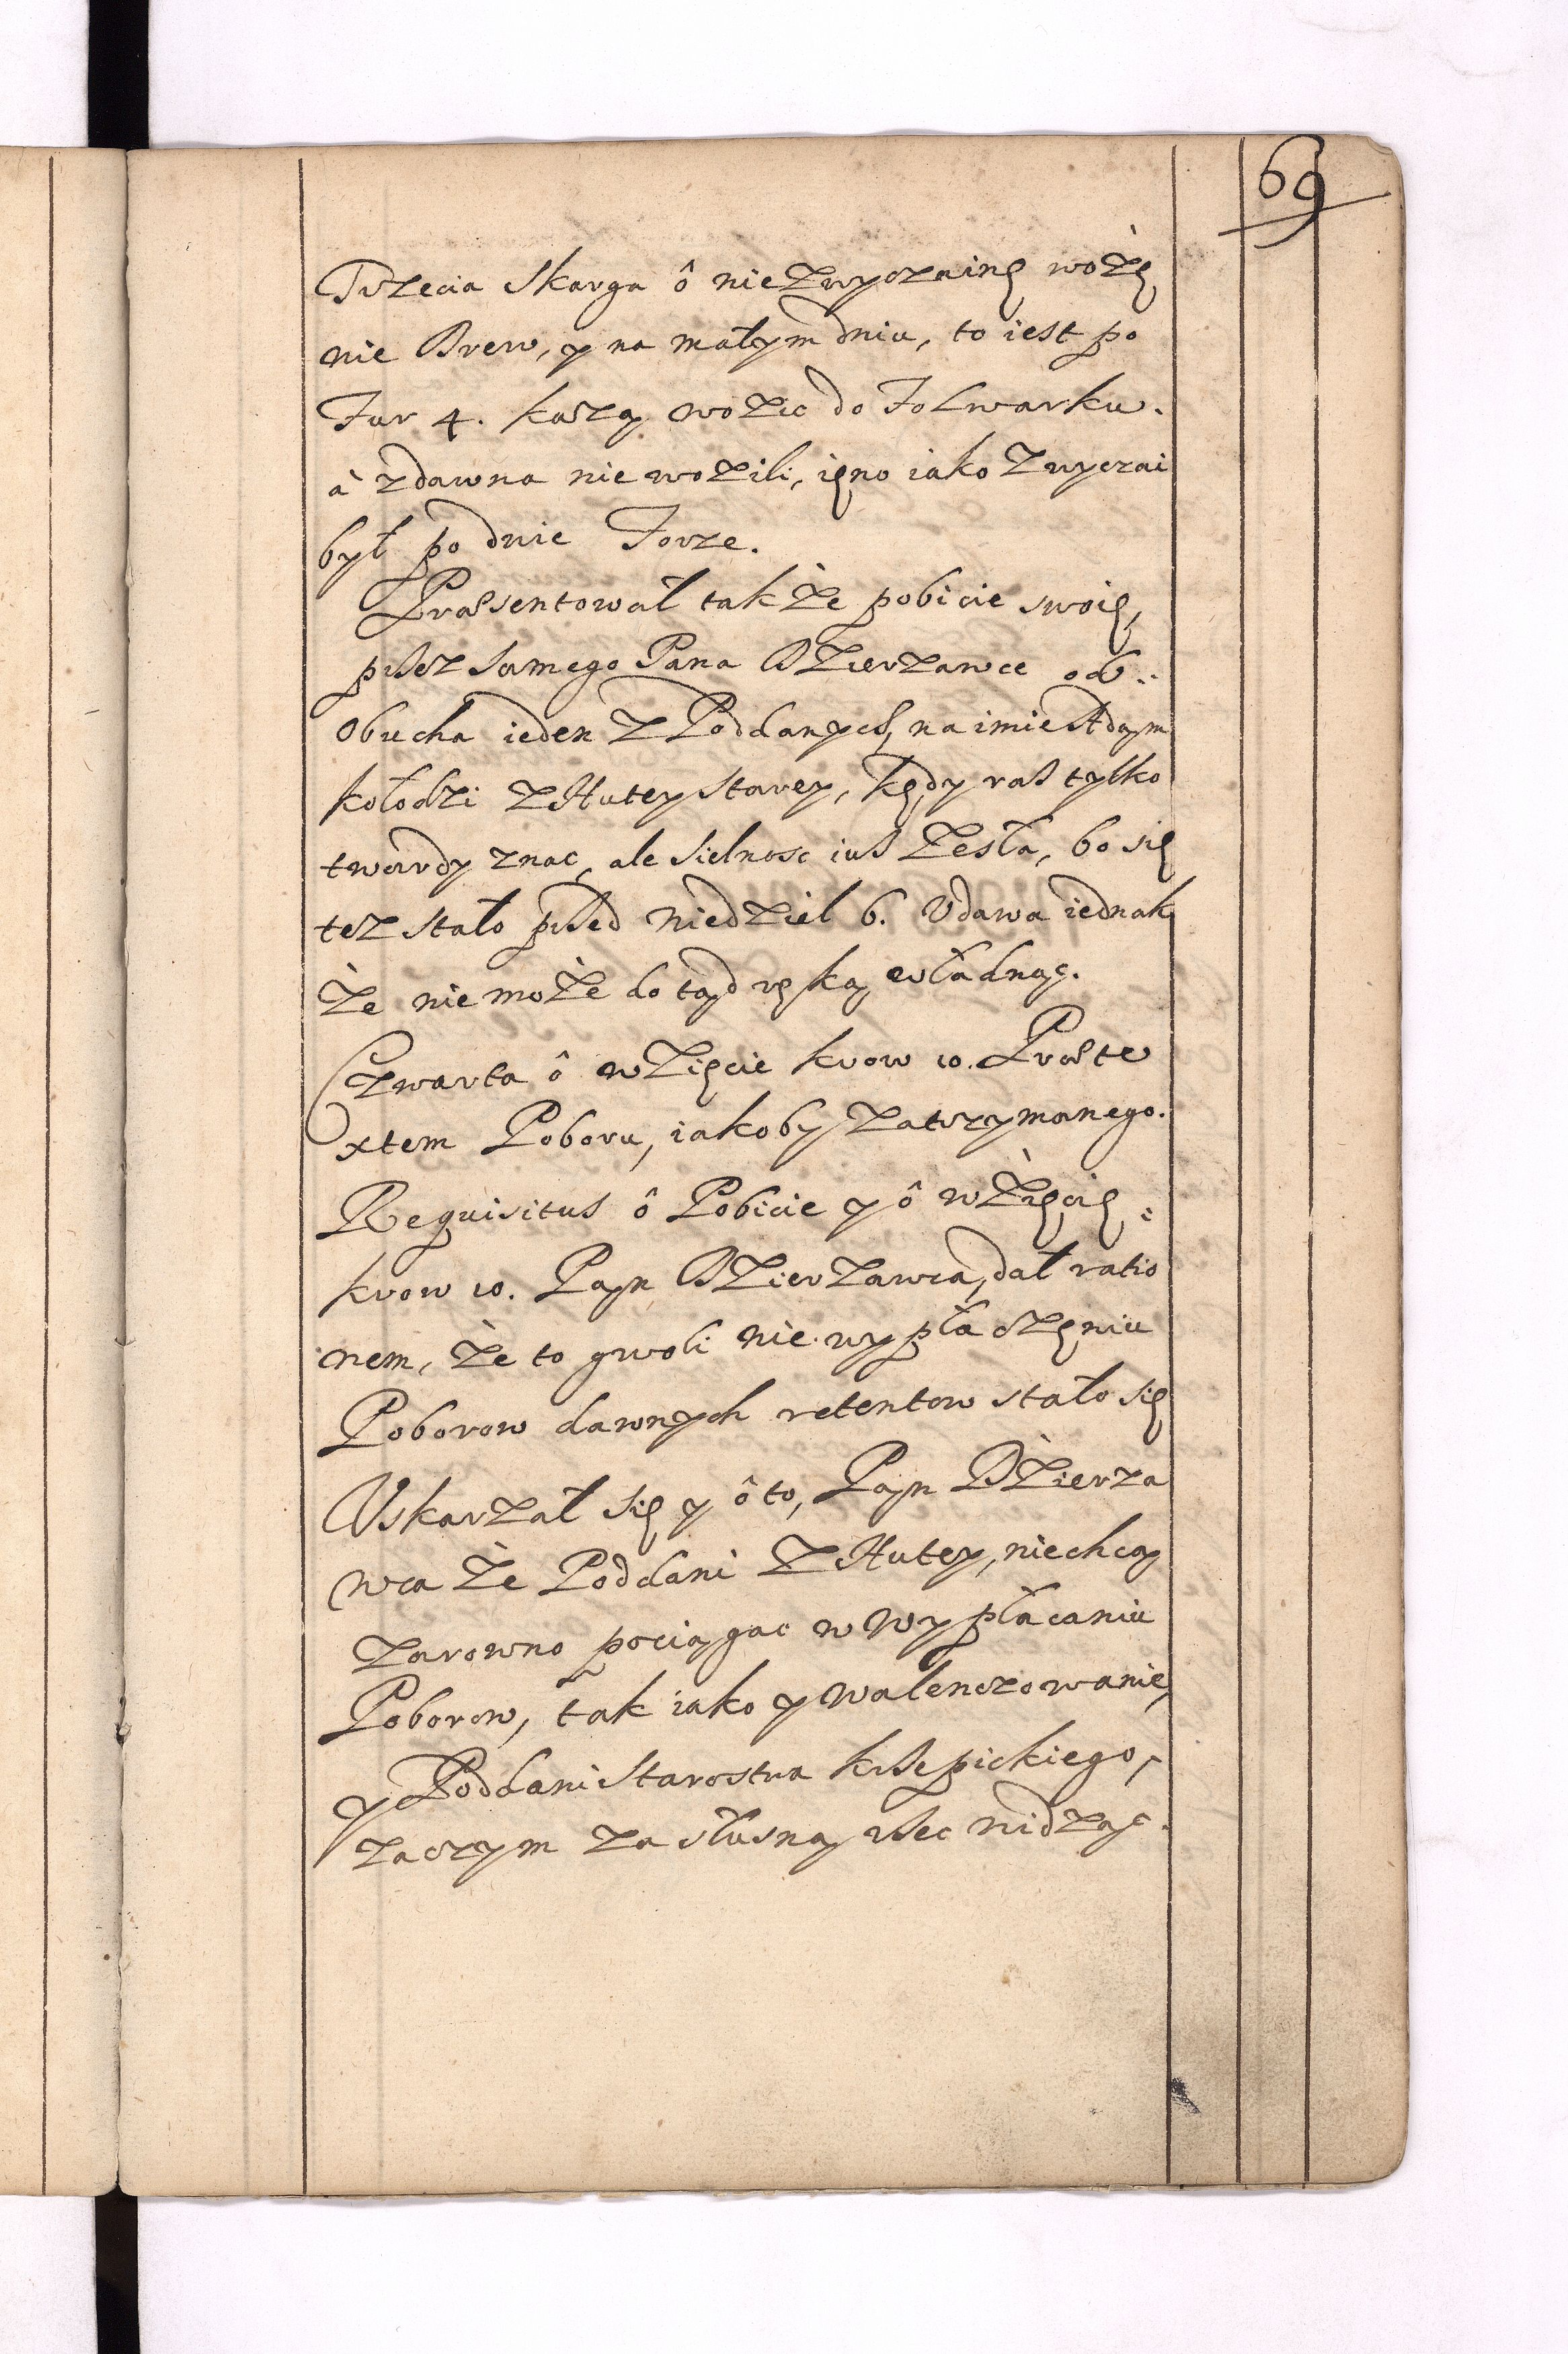 69
Trzecia skarga ô nieZwyczainę wożę
nie Drew, y na małym dniu, to iest po
Fur 4. każą wozic do Folwarku.
à zdawna nie wozili, ięno iako Zwyczai
był po dwie Forze.
Præsentował także pobicie swoię,
przez samego Pana Dzierzawce od
Obucha ieden z Poddanych, na imie Adąm
kołodzi z Hutey starey, kędy raz tylko
twardy znac, ale sielnosc iuż Zesła, bo się
tez stało przed niedziel 6. Vdawa iednak
że nie może do tąd ręką władnąc.
Czwarta ô wzięcie krow 10. Præte
xtem Poboru, iakoby zatrzymanego.
Requisitus ô Pobicie y ô wżięcię
krow 10. Pąn Dzierzawca, dał ratio
nem, że to gwoli nie wypłaczęniu
Poborow dawnych retentow stało się
Vskarzał się y ô to, Pąn Dżierza
wca że Poddani z Hutey, niechcą
zarowno pociągac w wypłacaniu
Poborow, tak iako y Walenczowanie,
y Poddani starostwa krzepickiego,
zaczym za słusną rzec widząc.